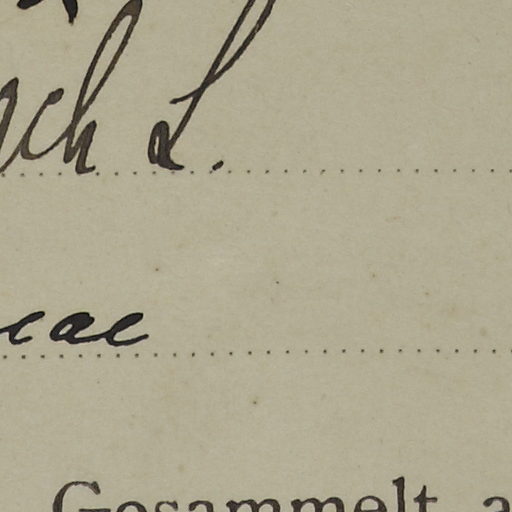 ch L.
eae
Gesammelt a